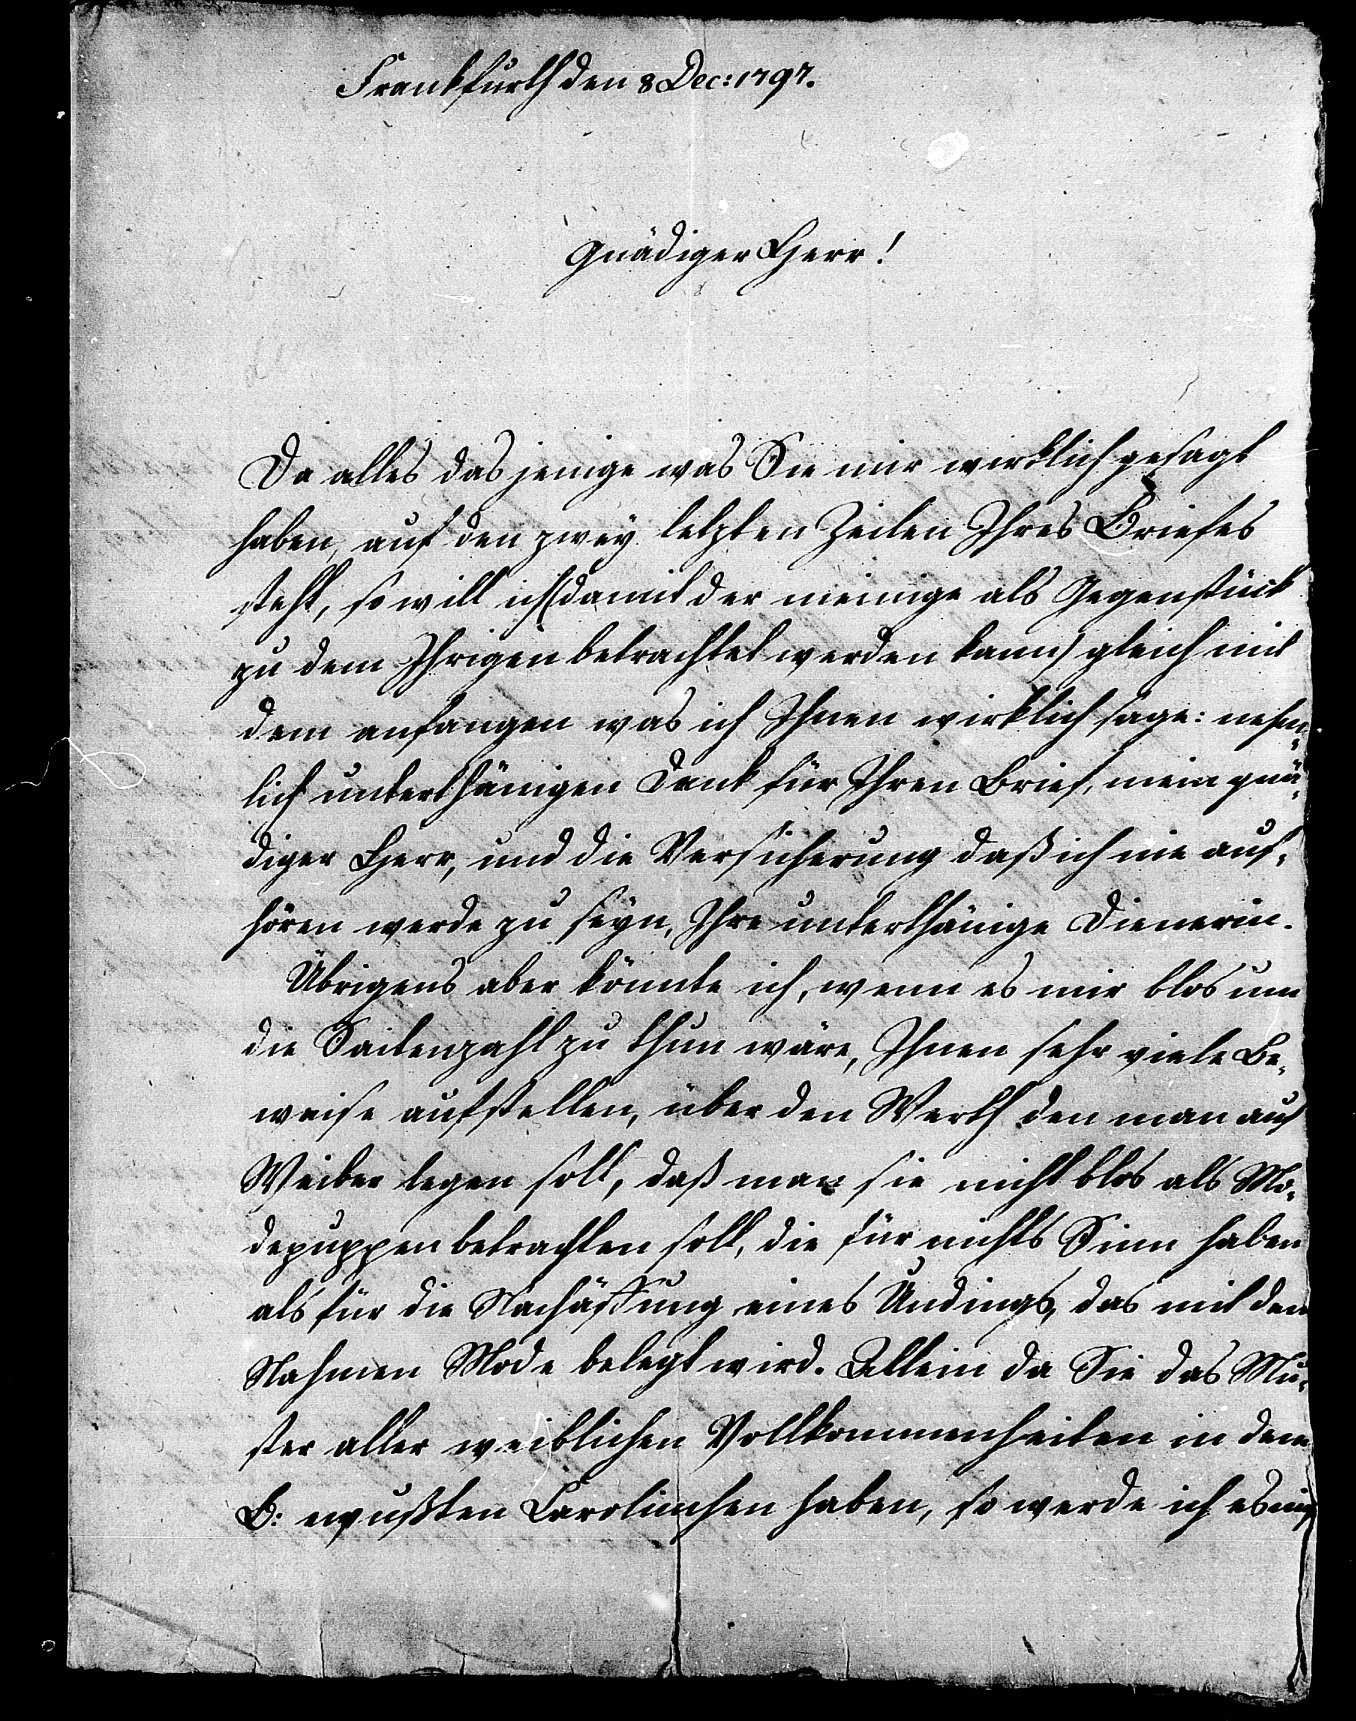 Frankfurth den 8 Dec: 1797.
Gnädiger Herr!
Da alles das jenige was Sie mir wirklich gesagt
haben, auf den zwey letzten Zeilen Ihres Briefes
steht, so will ich (damit der meinige als Gegenstück
zu dem Ihrigen betrachtet werden kann) gleich mit
dem anfangen was ich Ihnen wirklich sage: nehm-
lich unterthänigen Dank für Ihren Brief, mein gnä-
diger Herr, und die Versicherung daß ich nie auf-
hören werde zu seyn, Ihre unterthänige Dienerin.
Übrigens aber könnte ich, wenn es mir blos um
die Saitenzahl zu thun wäre, Ihnen sehr viele Be-
weise aufstellen, über den Werth den man auf
Weiber legen soll, daß man sie nicht blos als Mo-
depuppen betrachten soll, die für nichts Sinn haben
als für die Nachäffung eines Undings, das mit dem
Nahmen Mode belegt wird. Allein da Sie das Mu-
ster aller weiblichen Vollkommenheiten in dem
B: wußten Carolinchen haben, so werde ich es